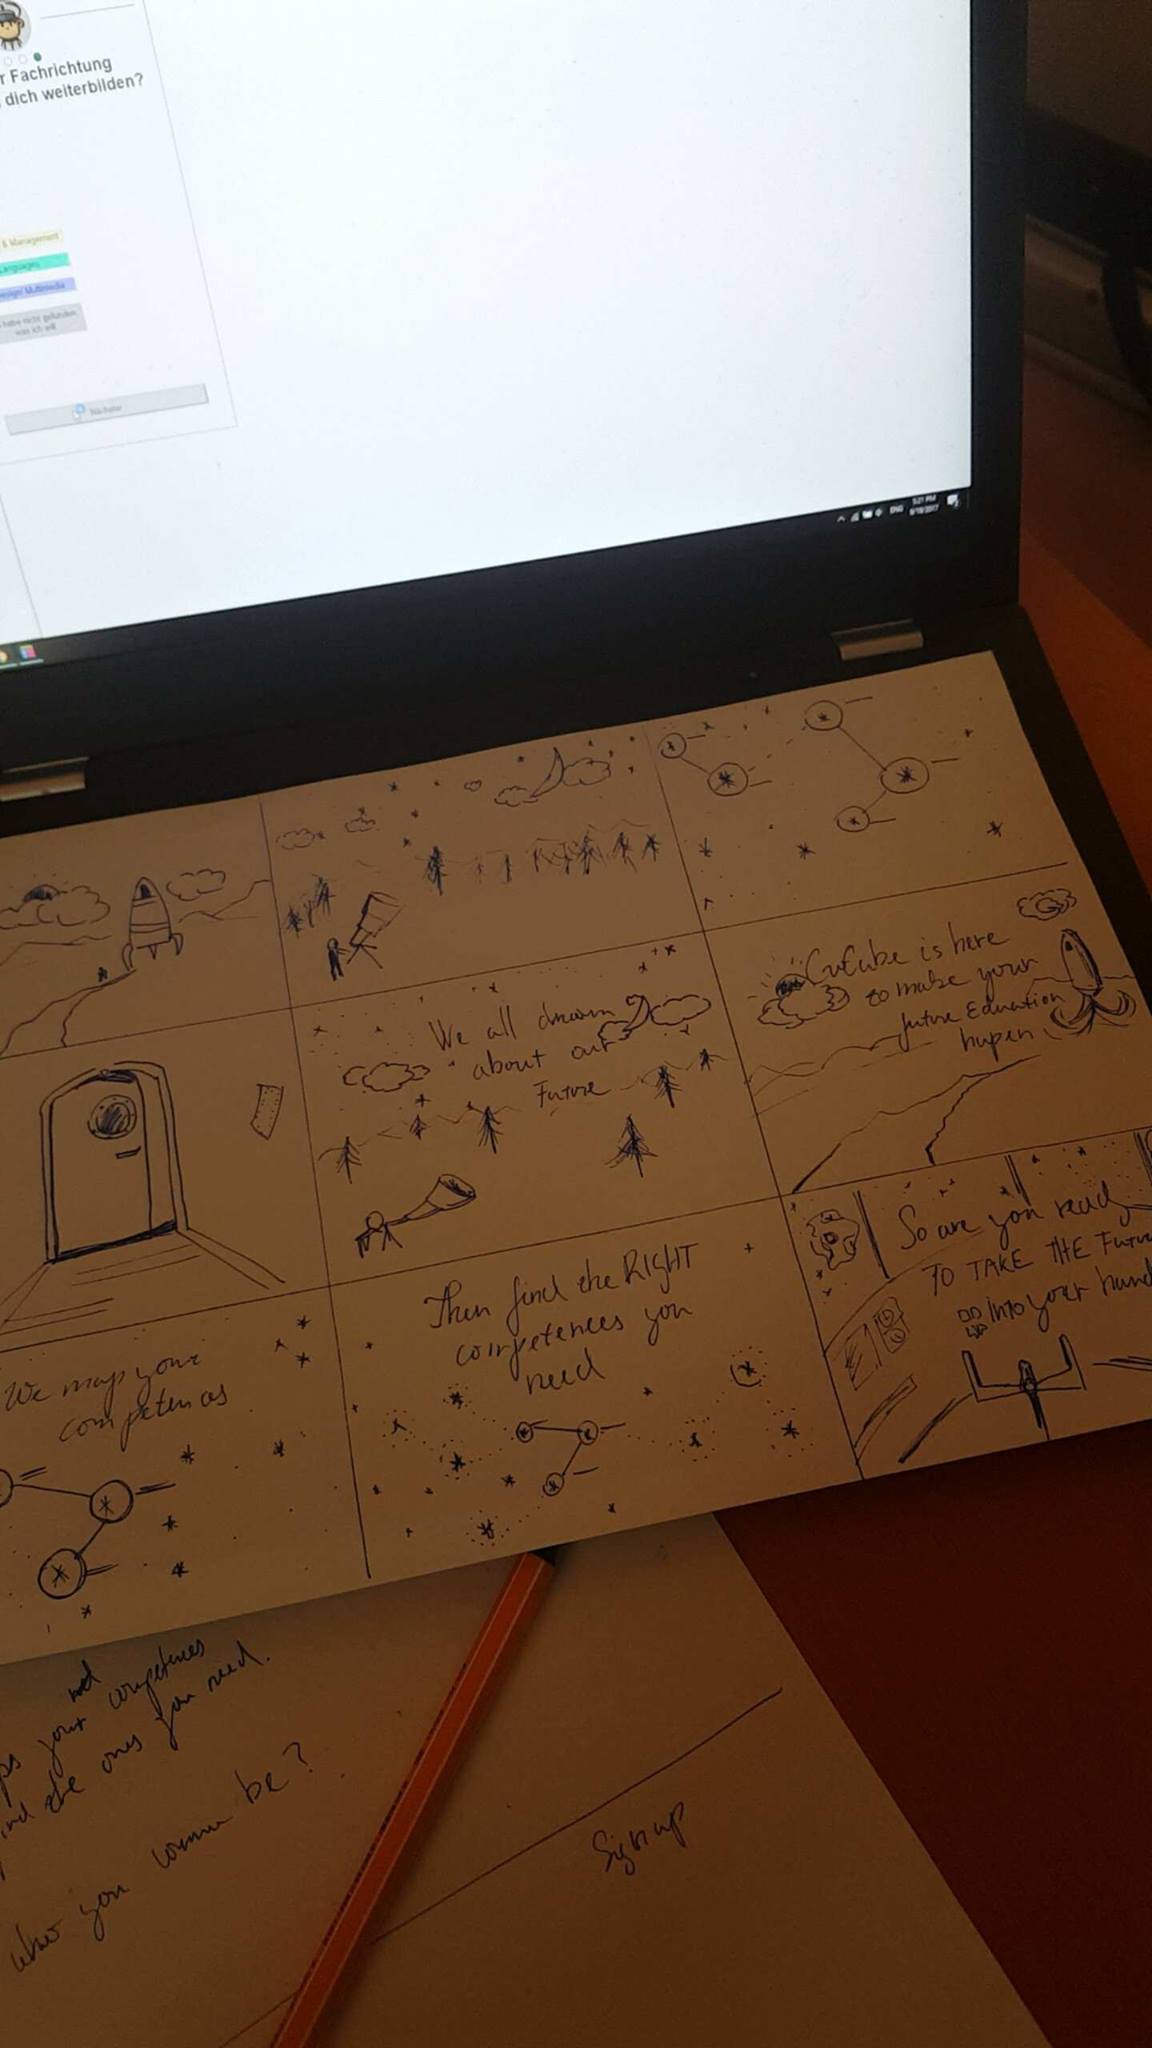 r Fachrichtung
dich weiterbilden?
& Management
Languages
Design/ Multimedia
habe nicht gefunden
was ich will
Nächste
ENG
5:21 PM
6/19/2017
We all dream
about our
Future
CuCube is here
to make your
future Eduation
hapen
We map your
competences
Then find the RIGHT
competences you
need
So are you ready
TO TAKE THE Future
into your hand
your competences
and the ones you need.
who you wanna be?
Sign up